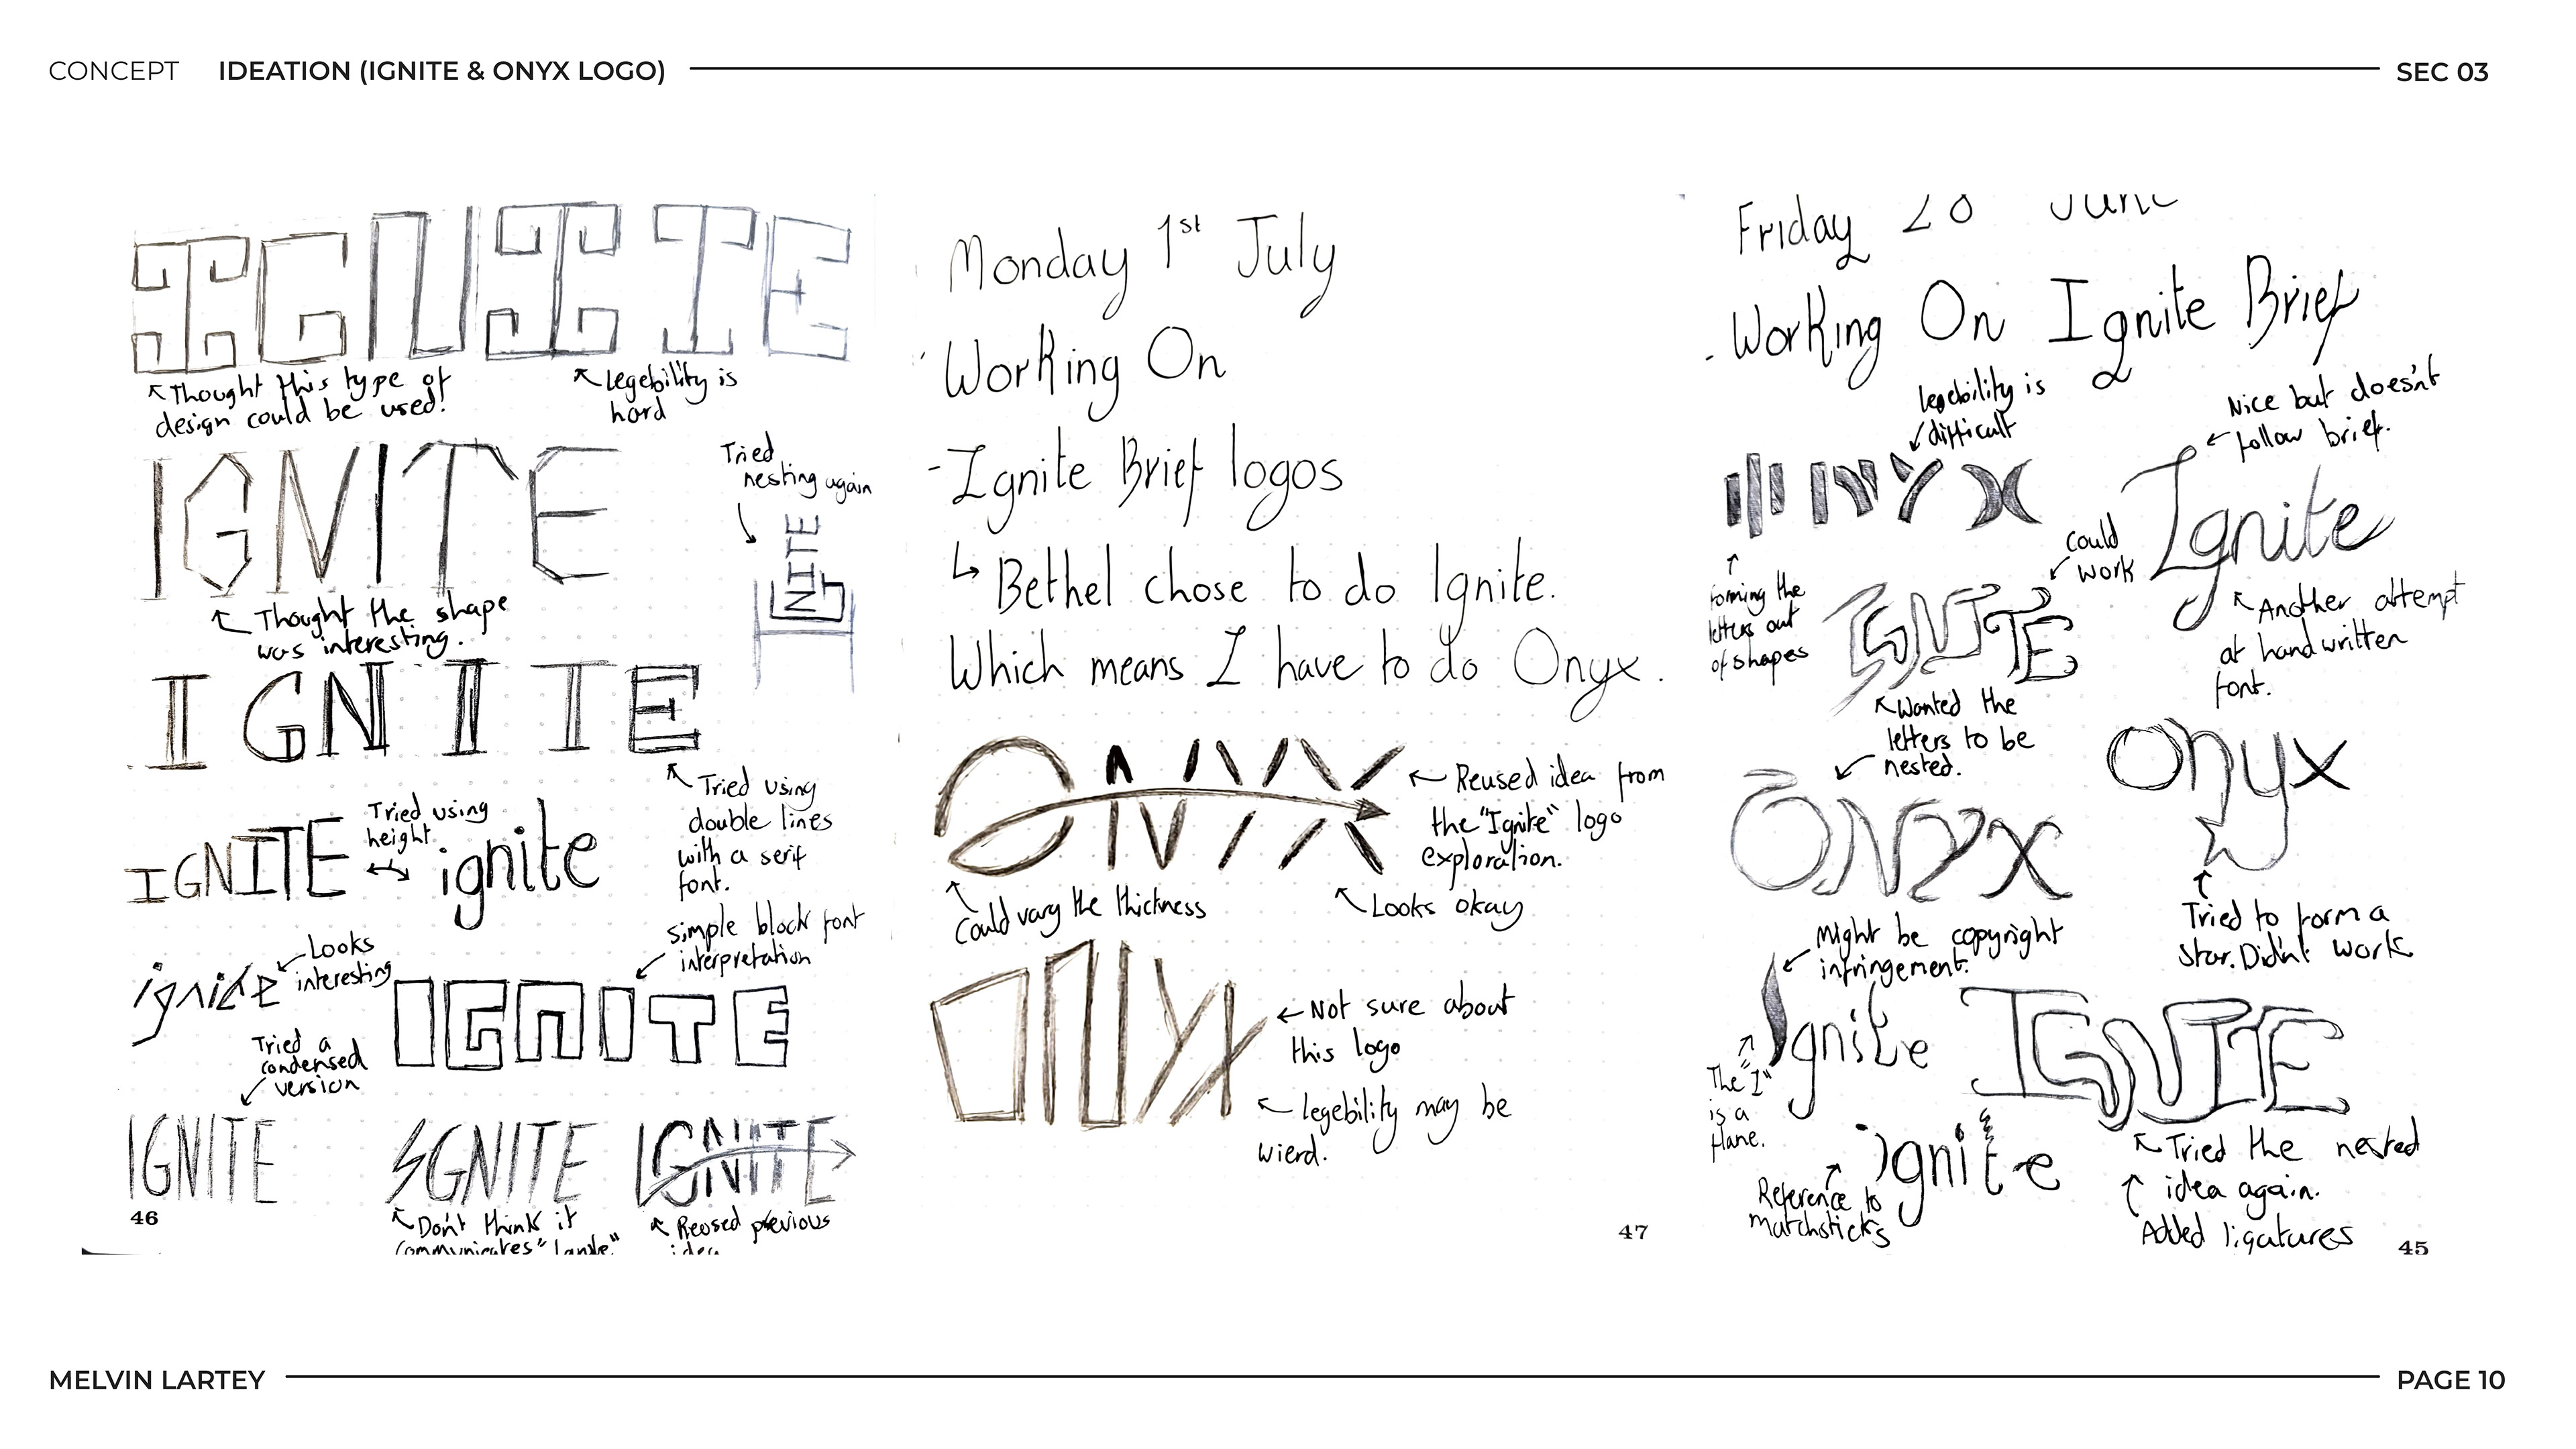 CONCEPT IDEATION (IGNITE & ONYX LOGO) SEC 03
IGNITE
Thought this type of
design could be used!
Legebility is
hard
IGNITE
Tried
nesting again
IGNITE
Thought the shape
was interesting.
IGNITE
Tried using
double lines
with a serif
font.
IGNITE
Tried using
height.
ignite
ignite
Looks
interesting
simple block font
interpretation
IGNITE
Tried a
condensed
version
IGNITE
IGNITE
Don't think it
communicates "Ignite."
IGNITE
Reused previous
idea
46
Monday 1st July
Working On
-Ignite Brief logos
↳ Bethel chose to do Ignite.
Which means I have to do Onyx.
ONYX
Reused idea from
the "Ignite" logo
exploration.
Could vary the thickness
Looks okay
ONYX
Not sure about
this logo
legebility may be
wierd.
47
Friday 28 June
- Working On Ignite Brief
legebility is
difficult
Nice but doesn't
follow brief.
ONYX
Ignite
forming the
letters out
of shapes
Could
work
IGNITE
Another attempt
at handwritten
font.
Wanted the
letters to be
nested.
ONYX
onyx
Tried to form a
star. Didn't work
Might be copyright
infringement.
Ignite
The "I"
is a
flame.
IGNITE
Tried the nested
idea again.
Added ligatures
ignite
Reference to
matchsticks
45
MELVIN LARTEY PAGE 10